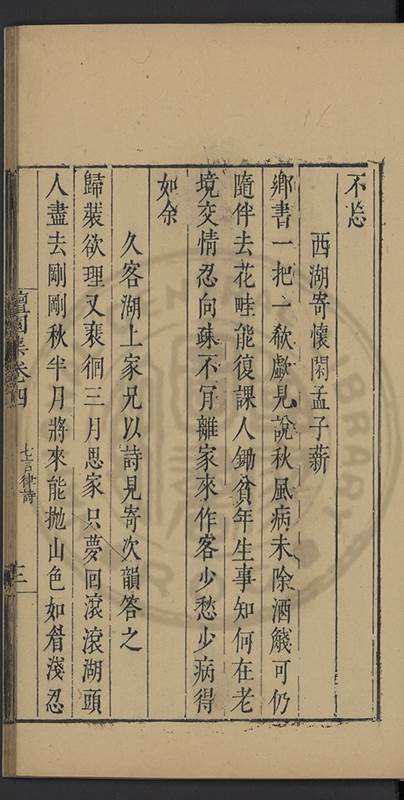 不忘
西湖寄懷閑孟子薪
鄉書一把一欷歔見說秋風病未除酒醆可仍
隨伴去花畦能復課人鋤貧年生事知何在老
境交情忍向疎不肎離家來作客少愁少病得
如余
久客湖上家兄以詩見寄次韻答之
歸裝欲理又裵徊三月思家只夢回滾滾湖頭
人盡去剛剛秋半月將來能抛山色如眉淺忍
檀園集卷四
七言律詩